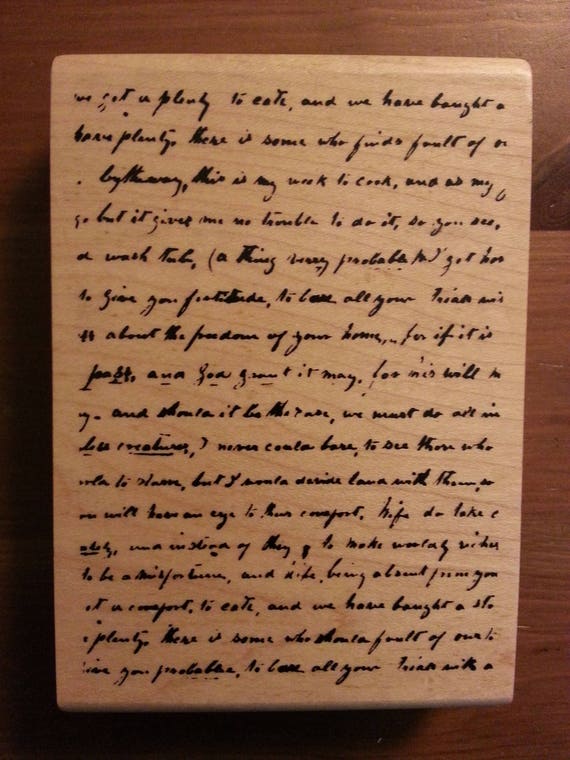 we got a plenty to eate, and we have baught a
have plenty. there is some who finds fault of o
. bytheway, this is my week to cook, and as my
go but it gives me no trouble to do it, so you see,
d wash tub, (a thing verry probable) got
to give you fortitude, to bare all your trials
about the freedom of your home, for if it is
past, and God grant it may, for will
y. and should it be the case, we must do all in
creatures,) never could bare, to see those who
to starve, but I would devide land with them, so
will have an eye to thier comfort. Wife do take c
and instead of they to make worldly riches
to be a misfortune, and wife, being absent from you
a comfort, to eate, and we have baught a sto
plenty. there is some who should fault of our
give you probable, to bare all your trials with a